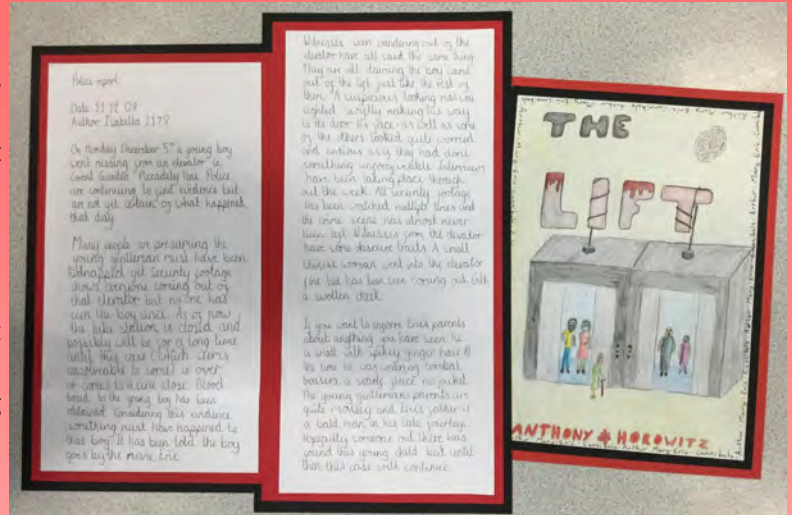 Police report.
Date 11 12 09
Author Isabilla 2178
On Monday December 5th a young boy
went missing from an elevator in
Covent Garden Piccadilly line. Police
are continuing to find evidence but
are not yet certain of what happened
that day.
Many people are presuming the
young gentleman must have been
kidnapped yet security footage
shows everyone coming out of
that elevator but no one has
seen the boy since. As of now
the tube station is closed and
possibly will be for a long time
until this case (which seems
unsolveable to some) is over
or comes to a close. Blood
to the young boy has been
this evidence
something must have happened to
that boy. It has been told the boy
goes by the name Eric.
Witnesses seen wandering out of the
elevator have all said the same thing.
They are all claiming the boy came
out of the lift just like the rest of
them. A suspicious looking man was
sighted swiftly making his way
to the door. His face as well as some
of the others looked quite worried
and anxious as if they had done
something unforgiveable. Interviews
have been taking place through
out the week. All security footage
has been watched multiple times and
the crime scene has almost never
been left. Witnesses from the elevator
have some obscure traits. A small
chinese woman went into the elevator
fine but has been seen coming out with
a swollen cheek.
If you want to inform Erics parents
about anything you have seen he
is small with spikey ginger hair. At
the time he was wearing combat
trousers a scarf, fleece no jacket.
The young gentlemans parents are
quite and Erics father is
a bald man in his late fourties.
Hopefully someone out there has
found this young child but until
then this case will continue.
THE
LIFT
ANTHONY HOROWITZ